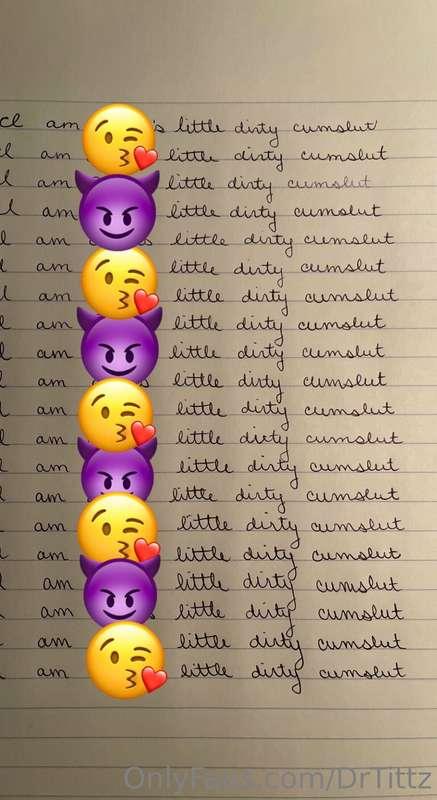 I am 's little dirty cumslut
I am little dirty cumslut
I am little dirty cumslut
I am little dirty cumslut
I am little dirty cumslut
I am little dirty cumslut
I am little dirty cumslut
I am little dirty cumslut
I am little dirty cumslut
I am little dirty cumslut
I am little dirty cumslut
I am little dirty cumslut
I am little dirty cumslut
I am little dirty cumslut
I am little dirty cumslut
I am little dirty cumslut
I am little dirty cumslut
I am little dirty cumslut
I am little dirty cumslut
I am little dirty cumslut
OnlyFans.com/DrTittz